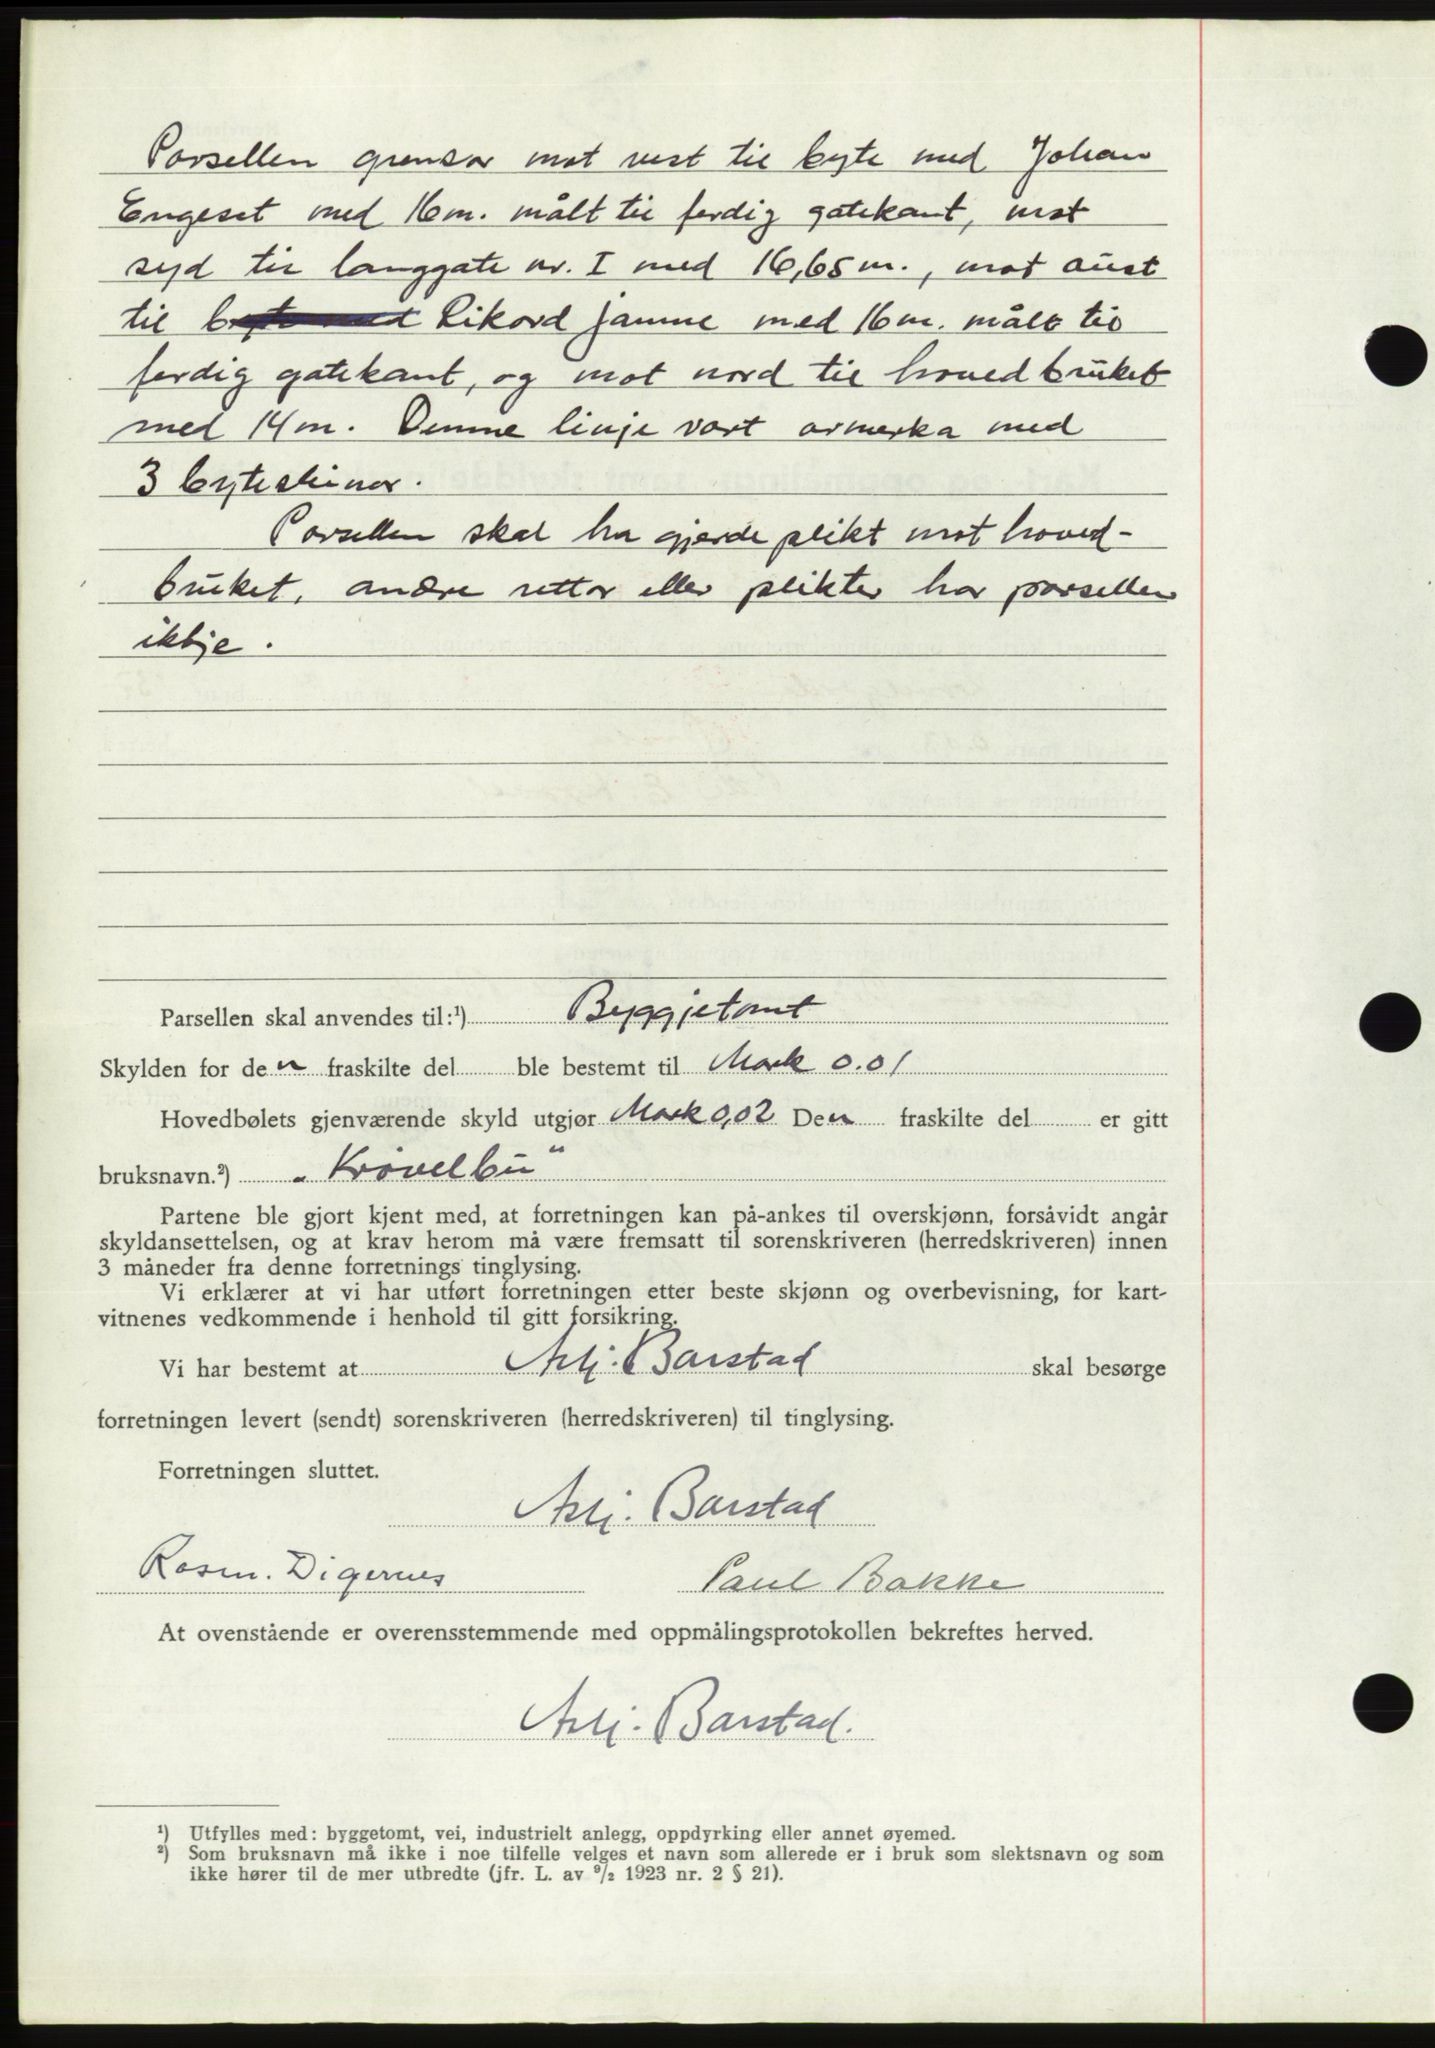 Parsellen grensar mot vest til byte med Johan
Engeset med 16 m. målt til ferdig gatekant, mot
syd til langgate nr. I med 16,65 m., mot aust
til byte med Rikard Jamne med 16 m. målt til
ferdig gatekant, og mot nord til hovedbruket
med 14 m. Denne linje vart avmerka med
3 bytesteinar.
Parsellen skal ha gjerdeplikt mot hoved-
bruket, andre rettar eller plikter har parsellen
ikkje.
Parsellen skal anvendes til:¹) Byggjetomt
Skylden for den fraskilte del ble bestemt til Mark 0.01
Hovedbølets gjenværende skyld utgjør Mark 0,02 Den fraskilte del er gitt
bruksnavn.²) „Krøvelbu"
Partene ble gjort kjent med, at forretningen kan på-ankes til overskjønn, forsåvidt angår
skyldansettelsen, og at krav herom må være fremsatt til sorenskriveren (herredskriveren) innen
3 måneder fra denne forretnings tinglysing.
Vi erklærer at vi har utført forretningen etter beste skjønn og overbevisning, for kart-
vitnenes vedkommende i henhold til gitt forsikring.
Vi har bestemt at Asbj. Barstad skal besørge
forretningen levert (sendt) sorenskriveren (herredskriveren) til tinglysing.
Forretningen sluttet.
Asbj. Barstad
Rasm. Digernes Paul Bakke
At ovenstående er overensstemmende med oppmålingsprotokollen bekreftes herved.
Asbj. Barstad.
¹) Utfylles med: byggetomt, vei, industrielt anlegg, oppdyrking eller annet øyemed.
²) Som bruksnavn må ikke i noe tilfelle velges et navn som allerede er i bruk som slektsnavn og som
ikke hører til de mer utbredte (jfr. L. av ⁹/₂ 1923 nr. 2 § 21).